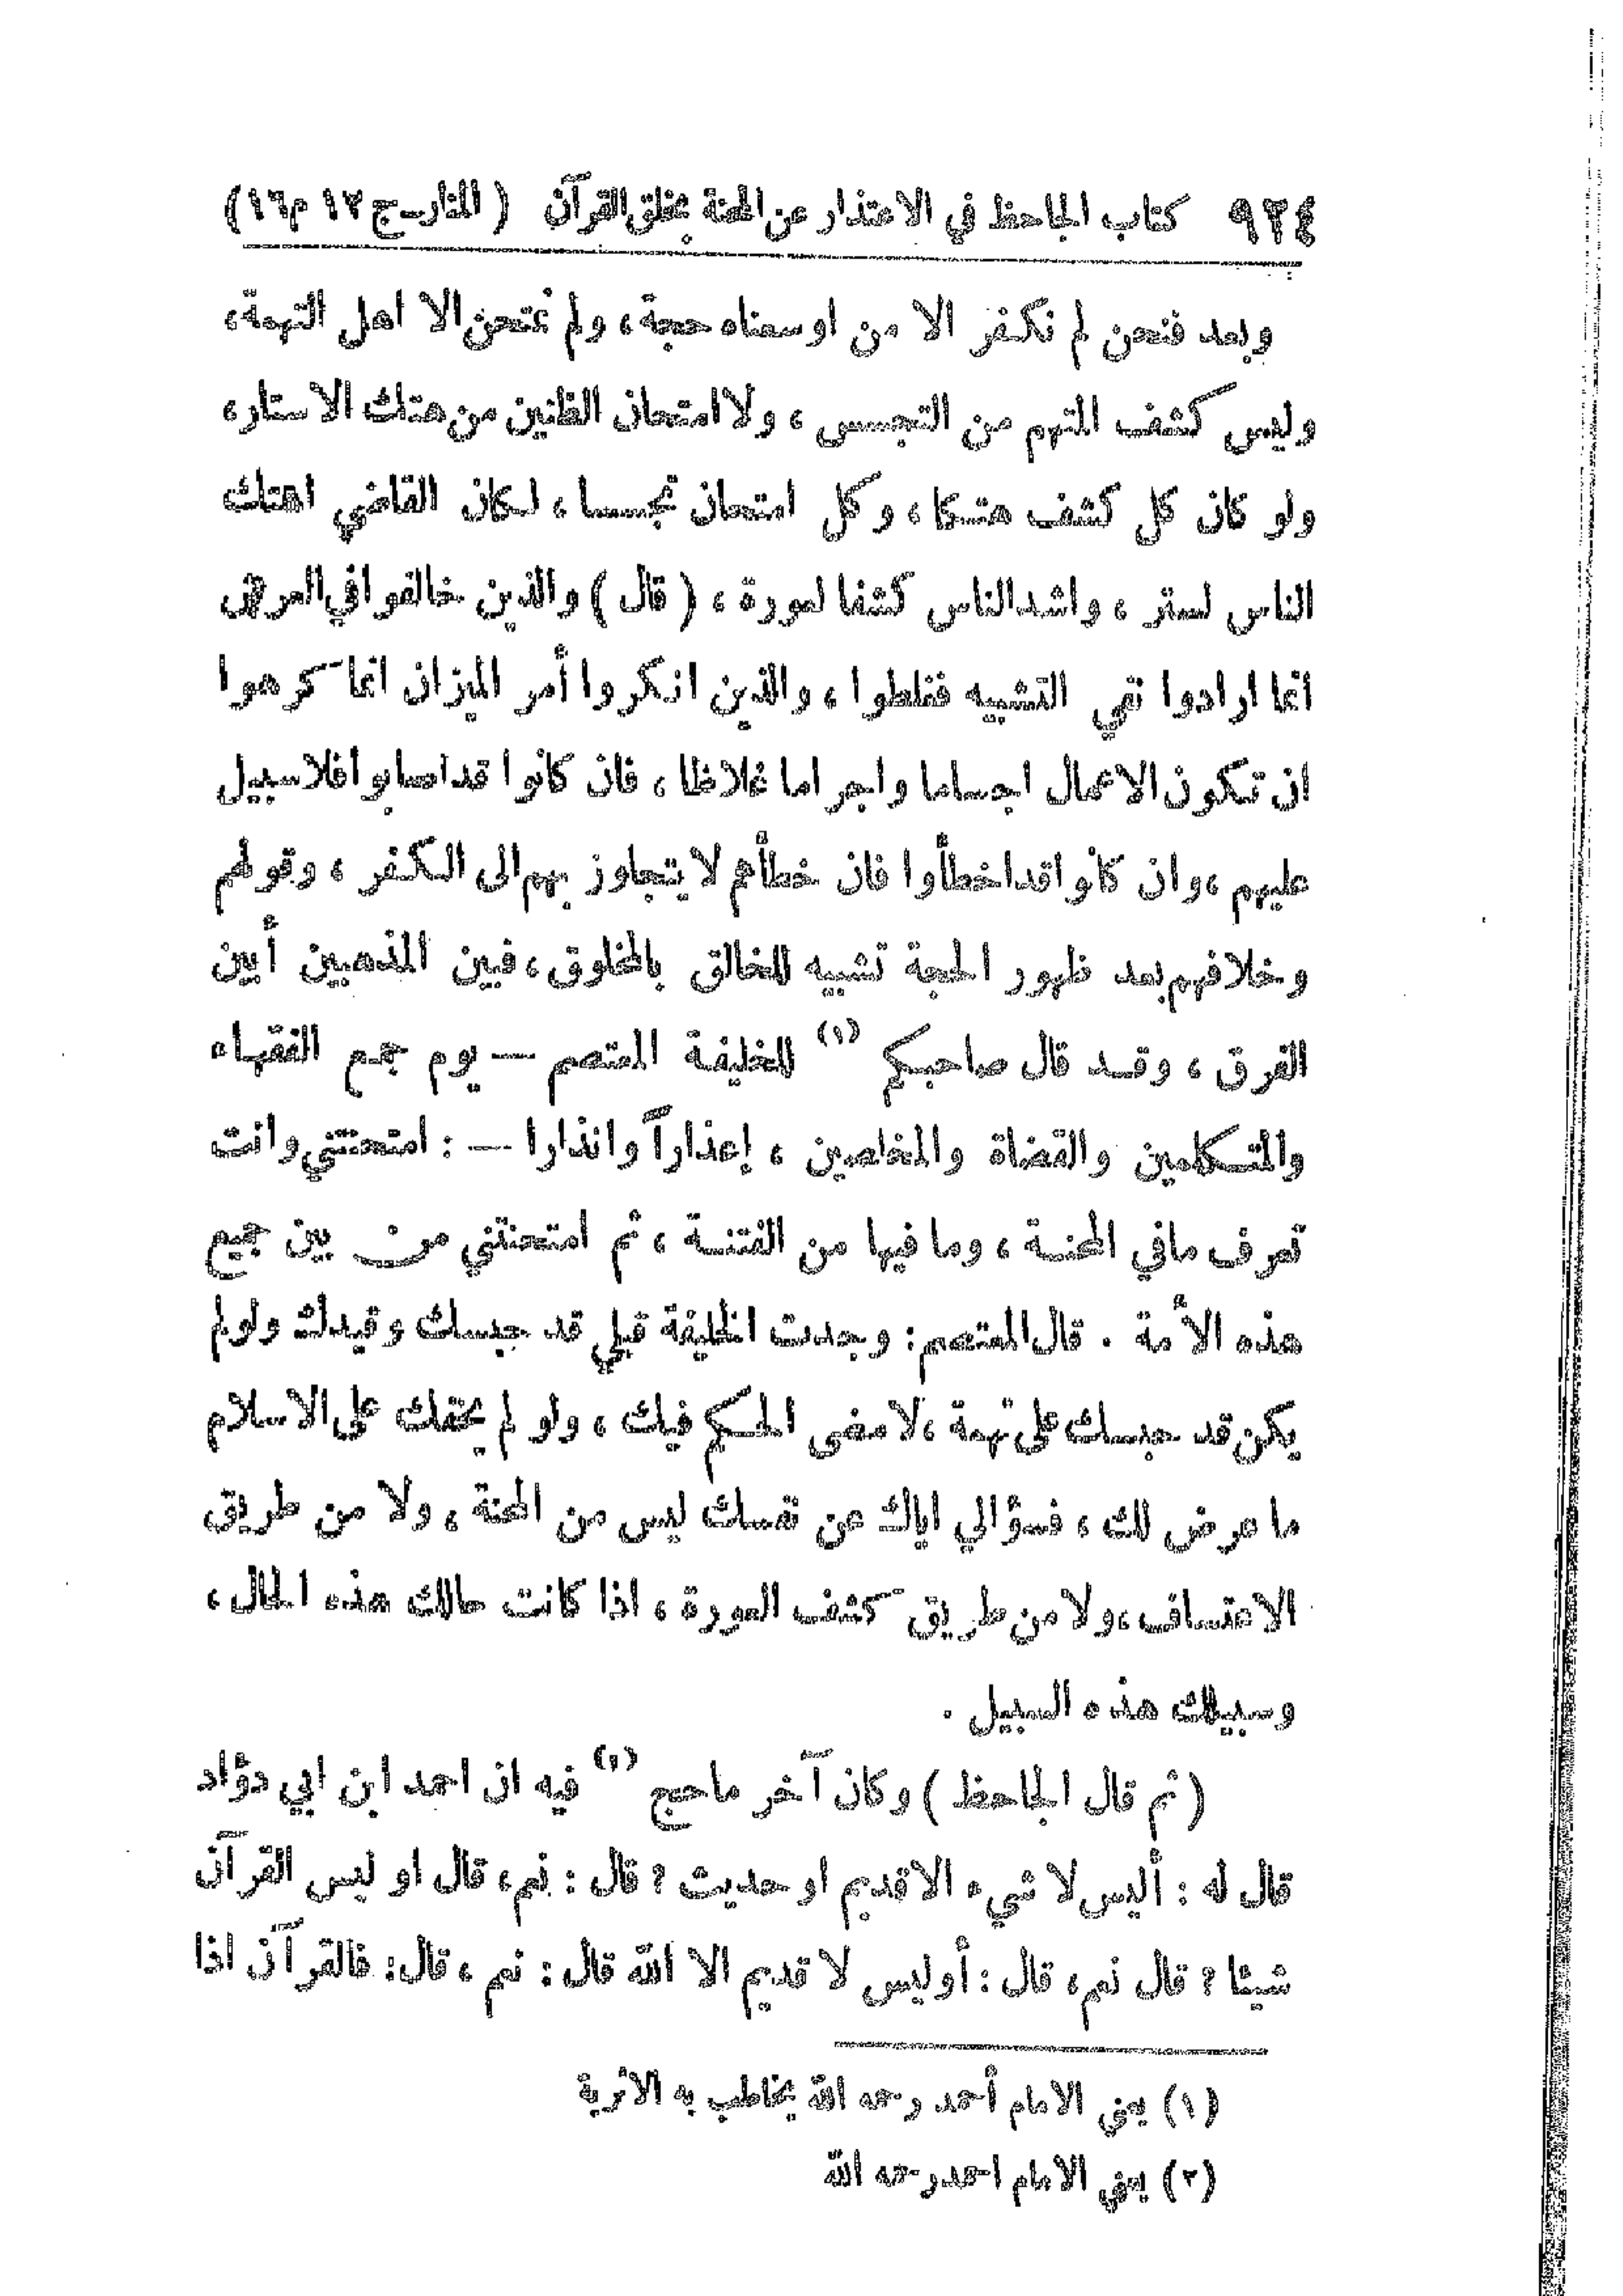 ٩٢٤ كتاب الجاحظ في الاعتذار عن المحنة بخلق القرآن (المنار ـ ج ١٢ م ١٦)
وبعد فنحن لم نكفر الا من اوسعناه حجة، ولم نمتحن الا اهل التهمة،
وليس كشف المتهم من التجسس، ولا امتحان الظنين من هتك الاستار،
ولو كان كل كشف هتكا، وكل امتحان تجسسا، لكان القاضي اهتك
الناس لستر، واشد الناس كشفا لعورة، (قال) والذين خالفوا في العرش
انما ارادوا نفي التشبيه فغلطوا، والذين انكروا أمر الميزان انما كرهوا
ان تكون الاعمال اجساما واجراما غلاظا، فان كانوا قد اصابوا فلا سبيل
عليهم، وان كانوا قد اخطأوا فان خطأهم لا يتجاوز بهم الى الكفر، وقولهم
وخلافهم بعد ظهور الحجة تشبيه للخالق بالمخلوق، فبين المذهبين أبين
الفرق، وقد قال صاحبكم (١) للخليفة المعتصم — يوم جمع الفقهاء
والمتكلمين والقضاة والمخلصين، إعذاراً وانذارا — : امتحنتني وانت
تعرف مافي المحنة، وما فيها من الفتنة، ثم امتحنتني من بين جميع
هذه الأمة . قال المعتصم: وجدت الخليفة قبلي قد حبسك وقيدك ولو لم
يكن قد حبسك على تهمة، لامضى الحكم فيك، ولو لم يخفك على الاسلام
ما عرض لك، فسؤالي اياك عن نفسك ليس من المحنة، ولا من طريق
الاعتساف، ولا من طريق كشف العورة، اذا كانت حالك هذه الحال،
وسبيلك هذه السبيل .
(ثم قال الجاحظ) وكان آخر ماحجج (١) فيه ان احمد ابن ابي دؤاد
قال له : أليس لا شيء الا قديم او حديث ؟ قال : نعم، قال او ليس القرآن
شيئا ؟ قال نعم، قال : أو ليس لا قديم الا الله قال : نعم، قال: فالقرآن اذا
(١) يعني الامام أحمد رحمه الله يخاطب به الاثرية
(٢) يعني الامام احمد رحمه الله